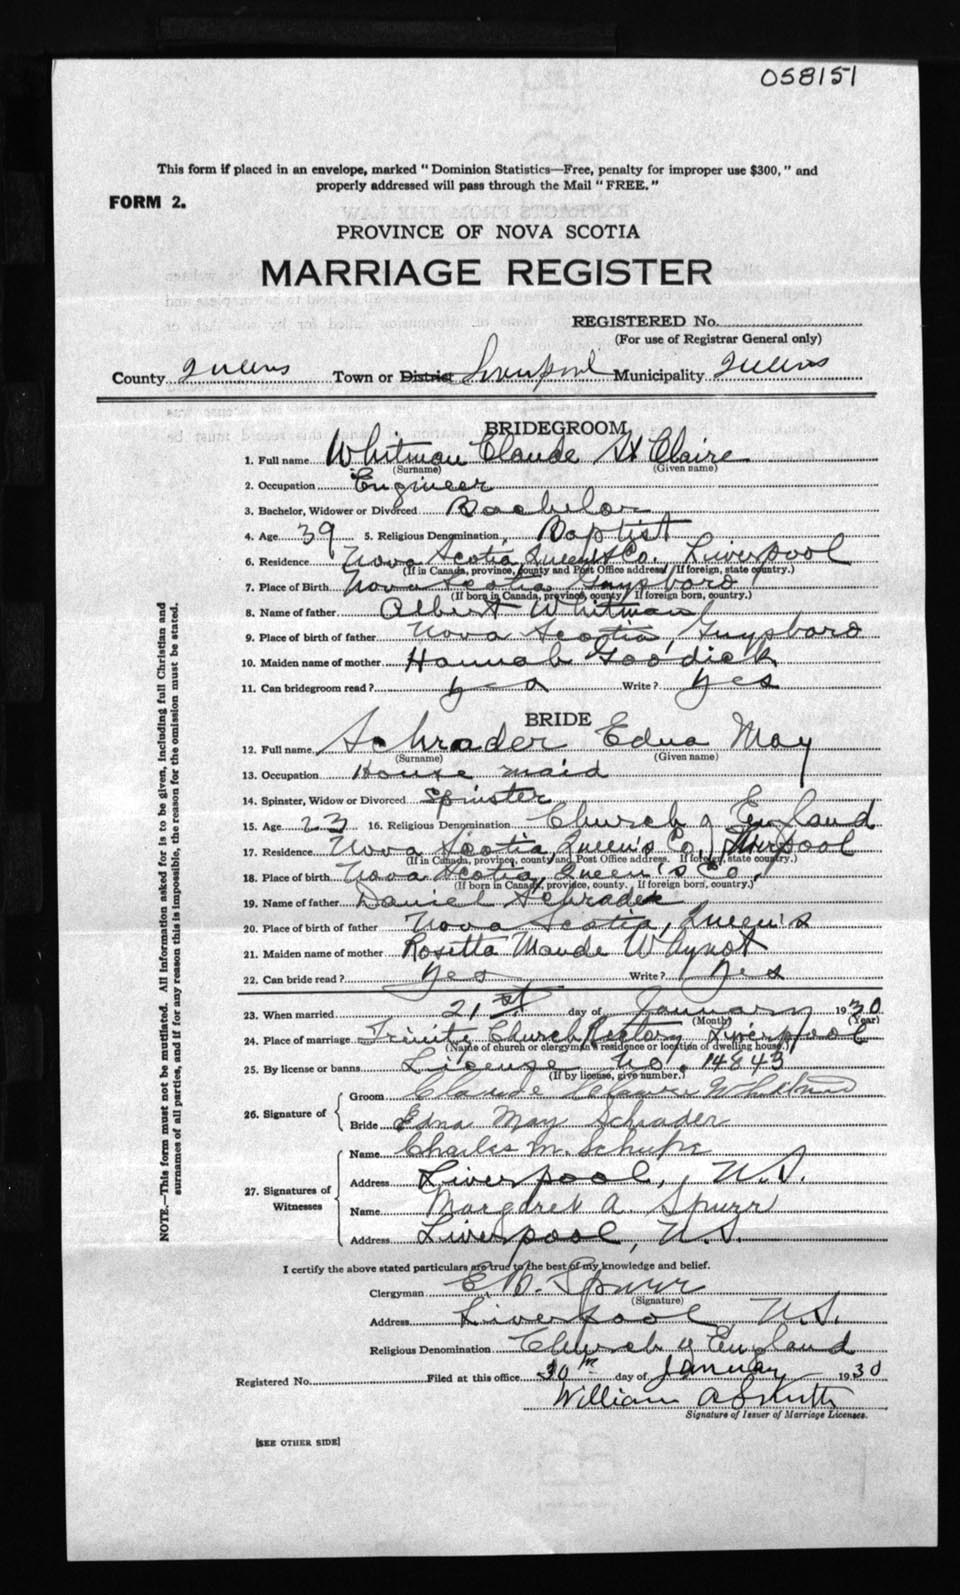 058151
This form if placed in an envelope, marked "Dominion Statistics—Free, penalty for improper use $300," and
properly addressed will pass through the Mail "FREE."
FORM 2.
PROVINCE OF NOVA SCOTIA
MARRIAGE REGISTER
REGISTERED No.
(For use of Registrar General only)
County Queens Town or District Liverpool Municipality Queens
BRIDEGROOM
1. Full name Whitman Claude St Claire
(Surname) (Given name)
2. Occupation Engineer
3. Bachelor, Widower or Divorced Bachelor
4. Age 39 5. Religious Denomination, Baptist
6. Residence Nova Scotia, Queen's Co. Liverpool
(If in Canada, province, county and Post Office address. If foreign, state country.)
7. Place of Birth Nova Scotia Guysboro
(If born in Canada, province, county. If foreign born, country.)
8. Name of father Albert Whitman
9. Place of birth of father Nova Scotia, Guysboro
10. Maiden name of mother Hannah Goodick
11. Can bridegroom read? yes Write? yes
BRIDE
12. Full name Schrader Edna May
(Surname) (Given name)
13. Occupation House maid
14. Spinster, Widow or Divorced Spinster
15. Age 23 16. Religious Denomination Church of England
17. Residence Nova Scotia, Queen's Co, Liverpool
(If in Canada, province, county and Post Office address. If foreign, state country.)
18. Place of birth Nova Scotia, Queen's Co,
(If born in Canada, province, county. If foreign born, country.)
19. Name of father Daniel Schrader
20. Place of birth of father Nova Scotia, Queen's
21. Maiden name of mother Rosetta Maude Whynot
22. Can bride read? Yes Write? Yes
23. When married 21st day of January 1930
(Month) (Year)
24. Place of marriage Trinity Church Rectory Liverpool
(Name of church or clergyman's residence or location of dwelling house.)
25. By license or banns License No. 14843
(If by license, give number.)
26. Signature of Groom Claude Whitman
Bride Edna May Schrader
27. Signatures of Witnesses Name Charles M.
Address Liverpool, N.S.
Name Margaret A. Spurr
Address Liverpool, N.S.
I certify the above stated particulars are true to the best of my knowledge and belief.
Clergyman E. B. Spurr
(Signature)
Address Liverpool N.S.
Religious Denomination Church of England
Registered No. Filed at this office 30th day of January 1930
William A Smith
Signature of Issuer of Marriage Licenses.
[SEE OTHER SIDE]
NOTE.—This form must not be mutilated. All information asked for is to be given, including full Christian and
surnames of all parties, and if for any reason this is impossible, the reason for the omission must be stated.